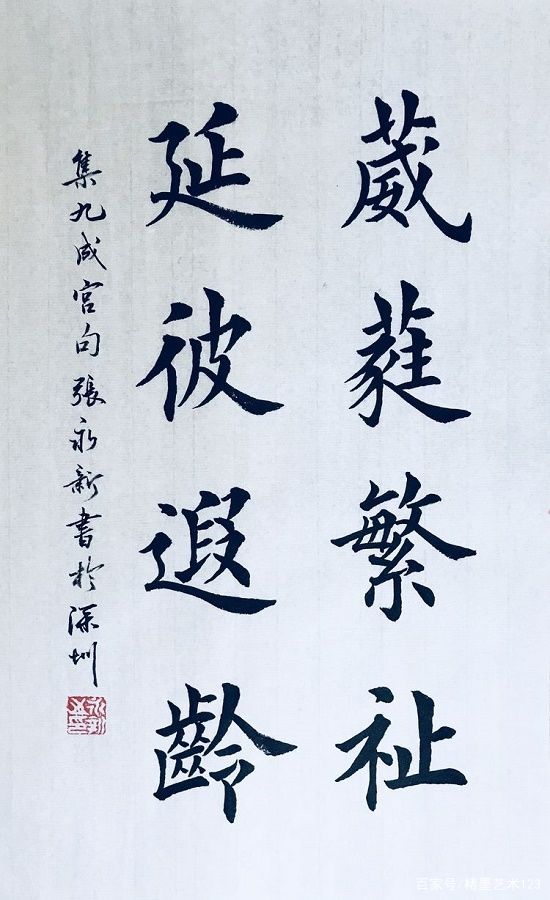 葳蕤繁祉
延彼遐齡
集九成宮句張永新書於深圳
百家号/楮墨艺术123